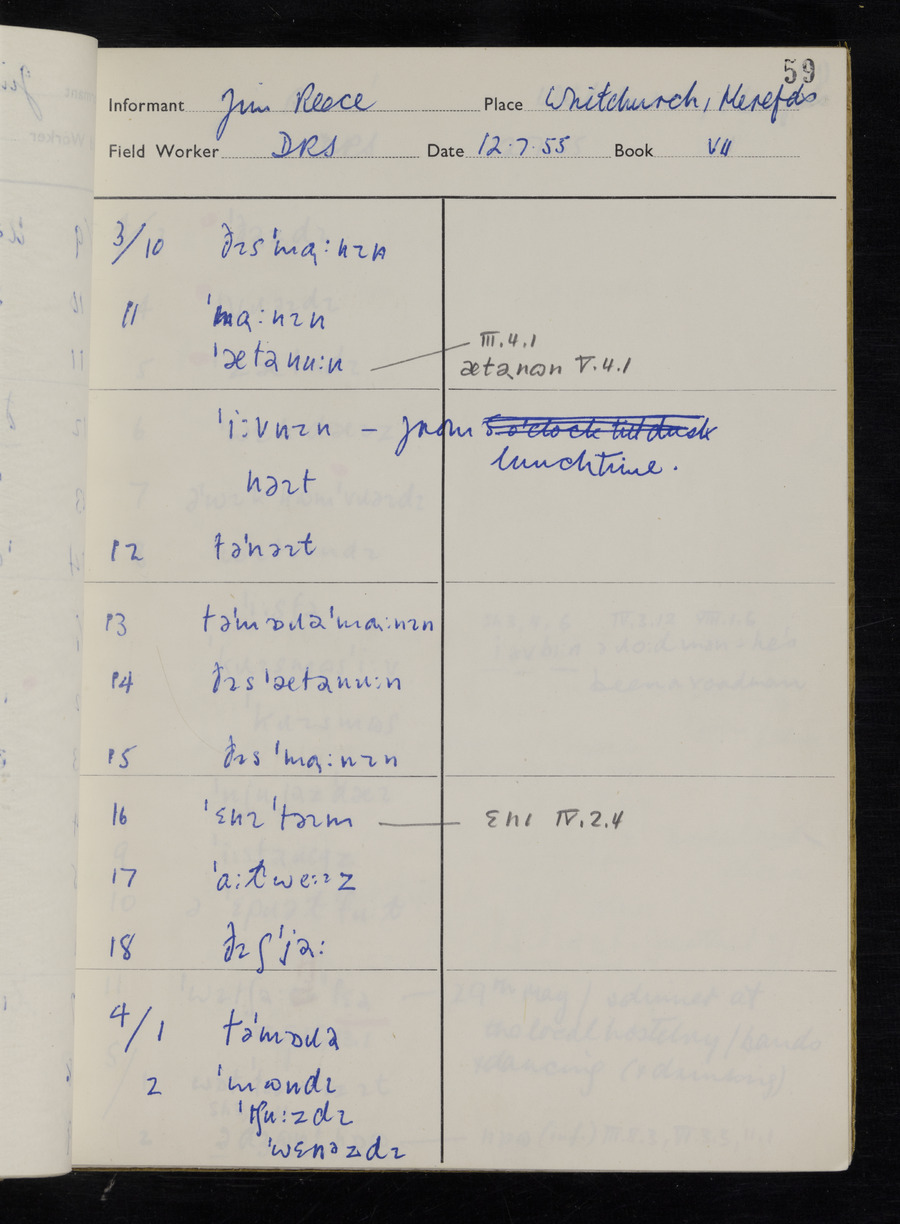 59
Informant Jim Reece Place Whitchurch, Herefds
Field Worker DRS Date 12.7.55 Book VII
3/10 ðɪsˈmɑ̨ːnɪn
11 ˈmɑ̨ːnɪn
ˈætənuːn III.4.1
ætənɷn V.4.1
ˈiːvnɪn – from 5 o'clock till dusk
lunchtime.
nəɪt
12 təˈnəɪt
13 təˈmɒɹəˈmɑ̨ːnɪn
14 ðɪsˈætənuːn
15 ðɪsˈmɑ̨ːnɪn
16 ˈɛnɪˈtəɪm ɛnɪ IV.2.4
17 ˈɑːtweːɪz
18 ðɪʃˈjəː
4/1 təˈmɒɹə
2 ˈmɷndɪ
ˈtʃuːzdɪ
ˈwɛnəzdɪ